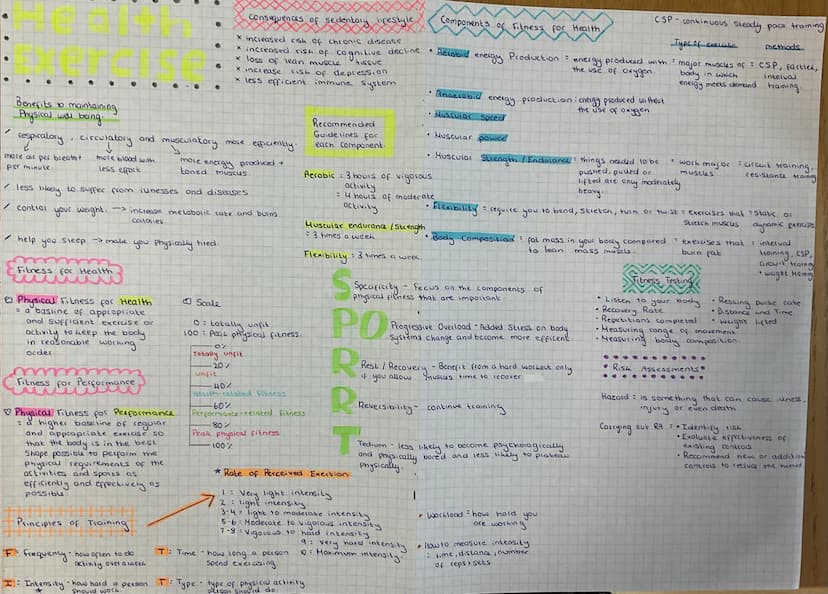 Health
Exercise
Benefits to maintaining
Physical well being.
✓ respiratory, circulatory and musculatory more efficiently.
more air per breath + per minute.
more blood with less effort
more energy produced + toned muscus.
✓ less likely to suffer from illnesses and diseases
✓ control your weight. → increase metabolic rate and burns
calories.
✓ help you sleep → make you physically tired.
Fitness for Health
Physical Fitness for Health
= a baseline of appropiate
and sufficient exercise or
activity to keep the body
in reasonable working
order.
Fitness for Performance
♡ Physical Fitness for Performance
= a higher baseline of regular
and appropiate exercise so
that the body is in the best
shape possible to perform the
physical requirements of the
activities and sports as
efficiently and effectively as
possible.
Principles of Training
F: Frequency - how often to do
activity over a week
I: Intensity - how hard a person
should work.
T: Time - how long a person
spend exercising
T: Type - type of physical activity
person should do.
Scale
0 = totally unfit
100 = Peak physical fitness.
0%
Totally unfit
20%
unfit
40%
Health-related fitness
60%
Performance-related fitness
80%
Peak physical fitness
100%
★ Rate of Perceived Exertion
1 = Very light intensity
2 = light intensity
3-4 = light to moderate intensity
5-6 = Moderate to vigorous intensity
7-8 = Vigorous to hard intensity
9 = Very hard intensity
10 = Maximum intensity
Consequences of sedentary lifestyle
x increased risk of chronic disease
x increased risk of cognitive decline
x loss of lean muscle tissue
x increase risk of depression
x less efficient immune system
Recommended
Guidelines for
each component.
Aerobic = 3 hours of vigorous
activity
= 4 hours of moderate
activity
Muscular endurance / Strength
= 3 times a week
Flexibility = 3 times a week.
SPORRT
Specificity - Focus on the components of
physical fitness that are important.
Progressive Overload - Added stress on body
systems change and become more efficent.
Rest / Recovery - Benefit from a hard workout only
if you allow muscles time to recover
Reversibility - continue training
Tedium - less likely to become psychologically
and physically bored and less likely to plateau
physically.
Components of Fitness for Health
CSP - continuous steady pace training
Type of exercise methods
• Aerobic energy Production = energy produced with
the use of oxygen.
= major muscles of
body in which
energy meets demand
= CSP, fartlek,
interval
training.
• Anaerobic energy production = energy produced without
the use of oxygen
• Muscular speed
• Muscular power
• Muscular Strength / Endurance = things needed to be
pushed, pulled or
lifted are only moderately
heavy.
• work major
muscles
= circuit training,
resistance training
• Flexibility = require you to bend, stretch, turn or twist
= exercises that
stretch muscles
= static or
dynamic exercises
• Body Composition = fat mass in your body compared
to lean mass muscle.
= exercises that
burn fat
= interval
training, CSP,
circuit training
• weight training
Fitness Testing
• Listen to your body
• Recovery Rate
• Repetitions completed
• Measuring range of movement
• Measuring body composition.
• Resting pulse rate
• Distance and Time
• weight lifted
• Risk Assessments •
Hazard = is something that can cause illness,
injury or even death
Carrying out RA = • Identify risk
• Evaluate effectiveness of
existing controls
• Recommend new or addition
controls to reduce the
• Workload = how hard you
are working
• How to measure intensity
= time, distance, number
of reps + sets